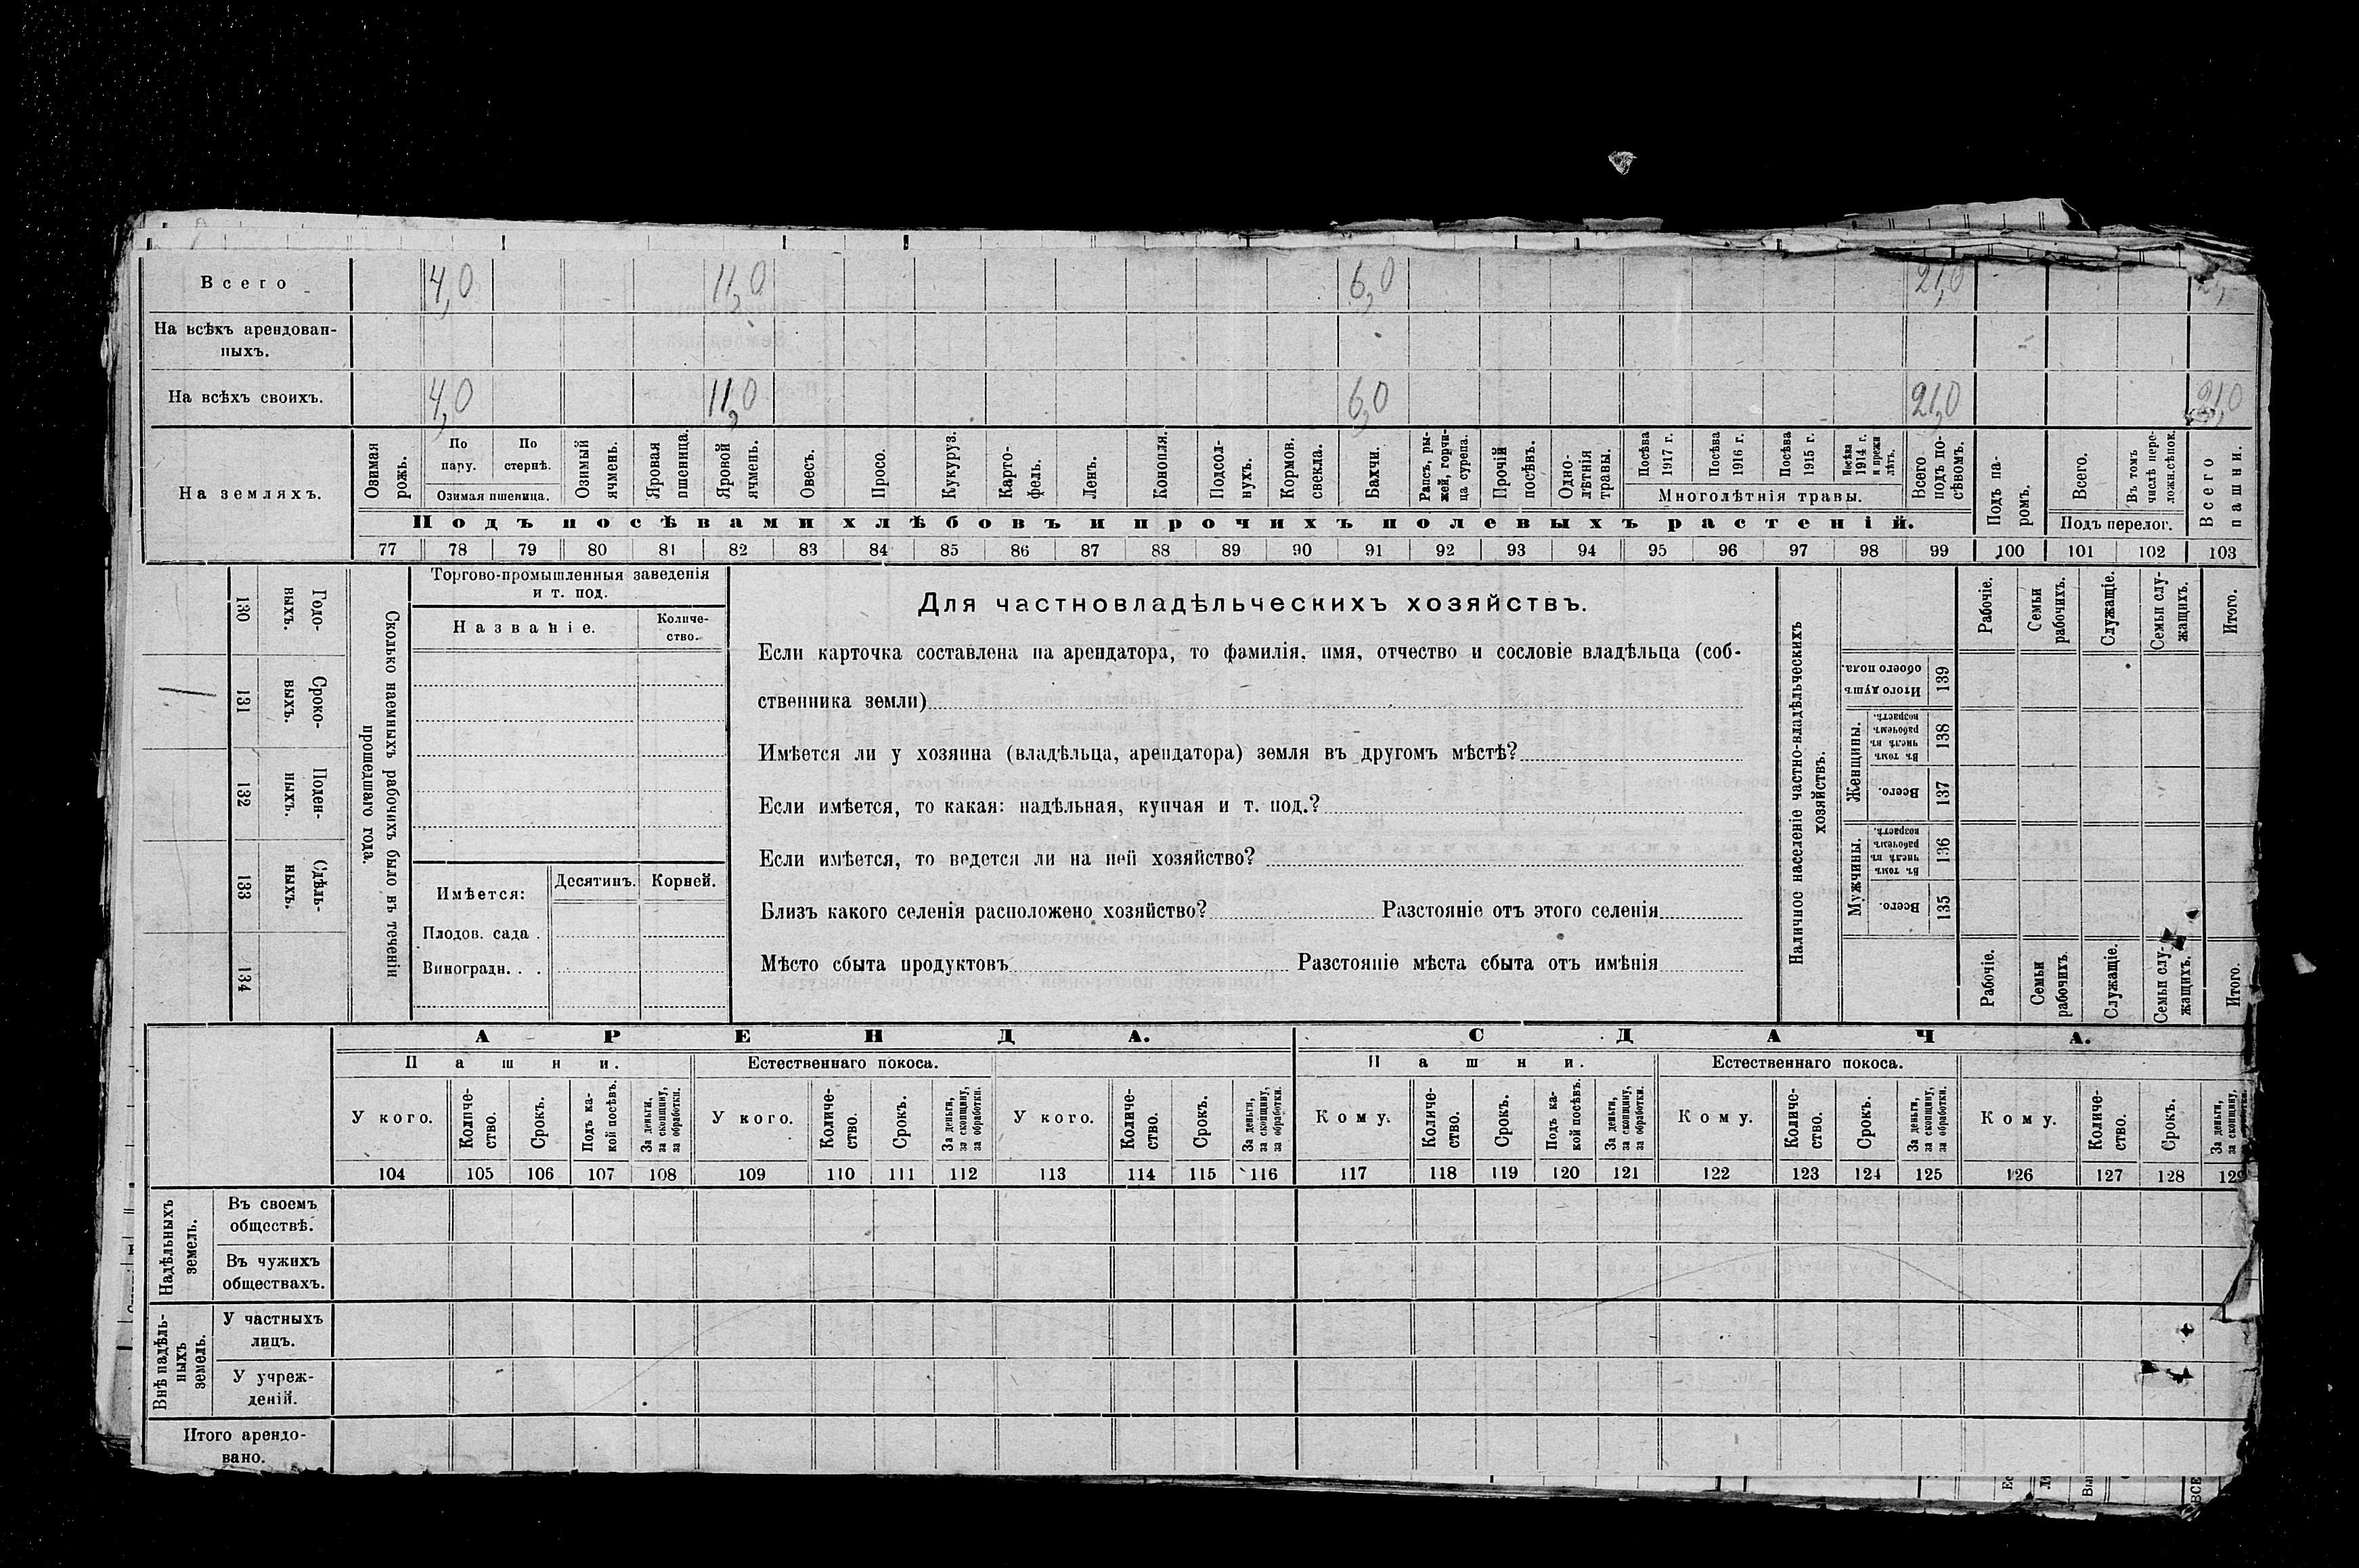 Всего 4,0 11,0 6,0 21,0
На всѣхъ арендован-
ныхъ.
На всѣхъ своихъ. 4,0 11,0 6,0 21,0 21,0
На земляхъ.
Озимая рожь.
По пару.
По стернѣ.
Озимая пшеница.
Озимый ячмень.
Яровая пшеница.
Яровой ячмень.
Овесъ.
Просо.
Кукуруз.
Карто-
фель.
Ленъ.
Конопля.
Подсол-
нухъ.
Кормов.
свекла.
Бахчи.
Рапсъ, ры-
жей, горчи-
ца сурепа.
Прочій
посѣвъ.
Одно-
лѣтнія
травы.
Посѣва
1917 г.
Посѣва
1916 г.
Посѣва
1915 г.
Посѣва
1914 г.
и прежн
лѣтъ.
Многолѣтнія травы.
Всего
подъ по-
сѣвомъ.
Подъ па-
ромъ.
Всего.
Въ томъ
числѣ пере-
ложн.сѣнок.
Подъ перелог.
Всего
пашни.
Подъ посѣвами хлѣбовъ и прочихъ полевыхъ растеній.
77 78 79 80 81 82 83 84 85 86 87 88 89 90 91 92 93 94 95 96 97 98 99 100 101 102 103
130 Годо-
выхъ.
131 Сроко-
выхъ.
132 Поден-
ныхъ.
133 Сдѣль-
ныхъ.
134
Сколько наемныхъ рабочихъ было въ теченіи
прошедшаго года.
Торгово-промышленныя заведенія
и т. под.
Названіе.
Количе-
ство.
Имѣется:
Десятинъ.
Корней.
Плодов. сада .
Виноградн. . .
Для частновладѣльческихъ хозяйствъ.
Если карточка составлена на арендатора, то фамилія, имя, отчество и сословіе владѣльца (соб-
ственника земли)
Имѣется ли у хозяина (владѣльца, арендатора) земля въ другомъ мѣстѣ?
Если имѣется, то какая: надѣльная, купчая и т. под.?
Если имѣется, то ведется ли на ней хозяйство?
Близъ какого селенія расположено хозяйство? Разстояніе отъ этого селенія
Мѣсто сбыта продуктовъ Разстояніе мѣста сбыта отъ имѣнія
Наличное населеніе частно-владѣльческихъ
хозяйствъ.
Рабочіе.
Семьи
рабочихъ.
Служащіе.
Семьи слу-
жащихъ.
Итого.
Итого душъ
обоего пола.
139
Женщины.
Въ томъ
числѣ въ
рабочемъ
возрастѣ.
138
Всего.
137
Мужчины.
Въ томъ
числѣ въ
рабочемъ
возрастѣ.
136
Всего.
135
Рабочіе.
Семьи
рабочихъ.
Служащіе.
Семьи слу-
жащихъ.
Итого.
АРЕНДА. СДАЧА.
Пашни. Естественнаго покоса. Пашни. Естественнаго покоса.
У кого.
Количе-
ство.
Срокъ.
Подъ ка-
кой посѣвъ.
За деньги,
за скопщину,
за обработки.
У кого.
Количе-
ство.
Срокъ.
За деньги,
за скопщину,
за обработки.
У кого.
Количе-
ство.
Срокъ.
За деньги,
за скопщину,
за обработки.
Кому.
Количе-
ство.
Срокъ.
Подъ ка-
кой посѣвъ.
За деньги,
за скопщину,
за обработки.
Кому.
Количе-
ство.
Срокъ.
За деньги,
за скопщину,
за обработки.
Кому.
Количе-
ство.
Срокъ.
За деньги,
за скопщину,
104 105 106 107 108 109 110 111 112 113 114 115 116 117 118 119 120 121 122 123 124 125 126 127 128 129
Надѣльныхъ
земель.
Въ своемъ
обществѣ.
Въ чужихъ
обществахъ.
Внѣ надѣль-
ныхъ
земель.
У частныхъ
лицъ.
У учреж-
деній.
Итого арендо-
вано.